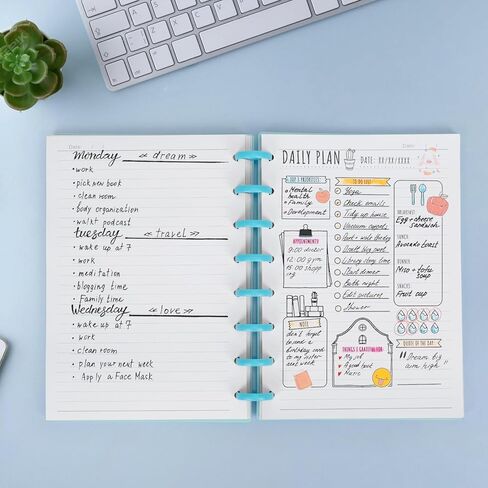 Date:
Monday « dream »
• work
• pick new book
• clean room
• body organization
• walkt podcast
Tuesday « travel »
• wake up at 7
• work
• meditation
• blogging time
• Family time
Wednesday « love »
• wake up at 7
• work
• clean room
• plan your next week
• Apply a Face Mask
Date:
DAILY PLAN
DATE: XX/XX/XXXX
TOP 3 PRIORITIES
• Mental health
• Family
• Development
APPOINTMENTS
9:00 doctor
12:00 gym
15:00 shopping
NOTE
don't forget
to send a
birthday card
to my sister
next week
TO DO LIST
Yoga
Check emails
Tidy up house
Vacuum carpets
Start dinner
Bath night
Edit pictures
Shower
THINGS I GRATEFUL FOR
My job
A good book
Music
BREAKFAST
Egg + cheese
sandwich
LUNCH
Avocado toast
DINNER
Miso + tofu
soup
SNACKS
Fruit cup
QUOTE OF THE DAY
"Dream big
aim high"